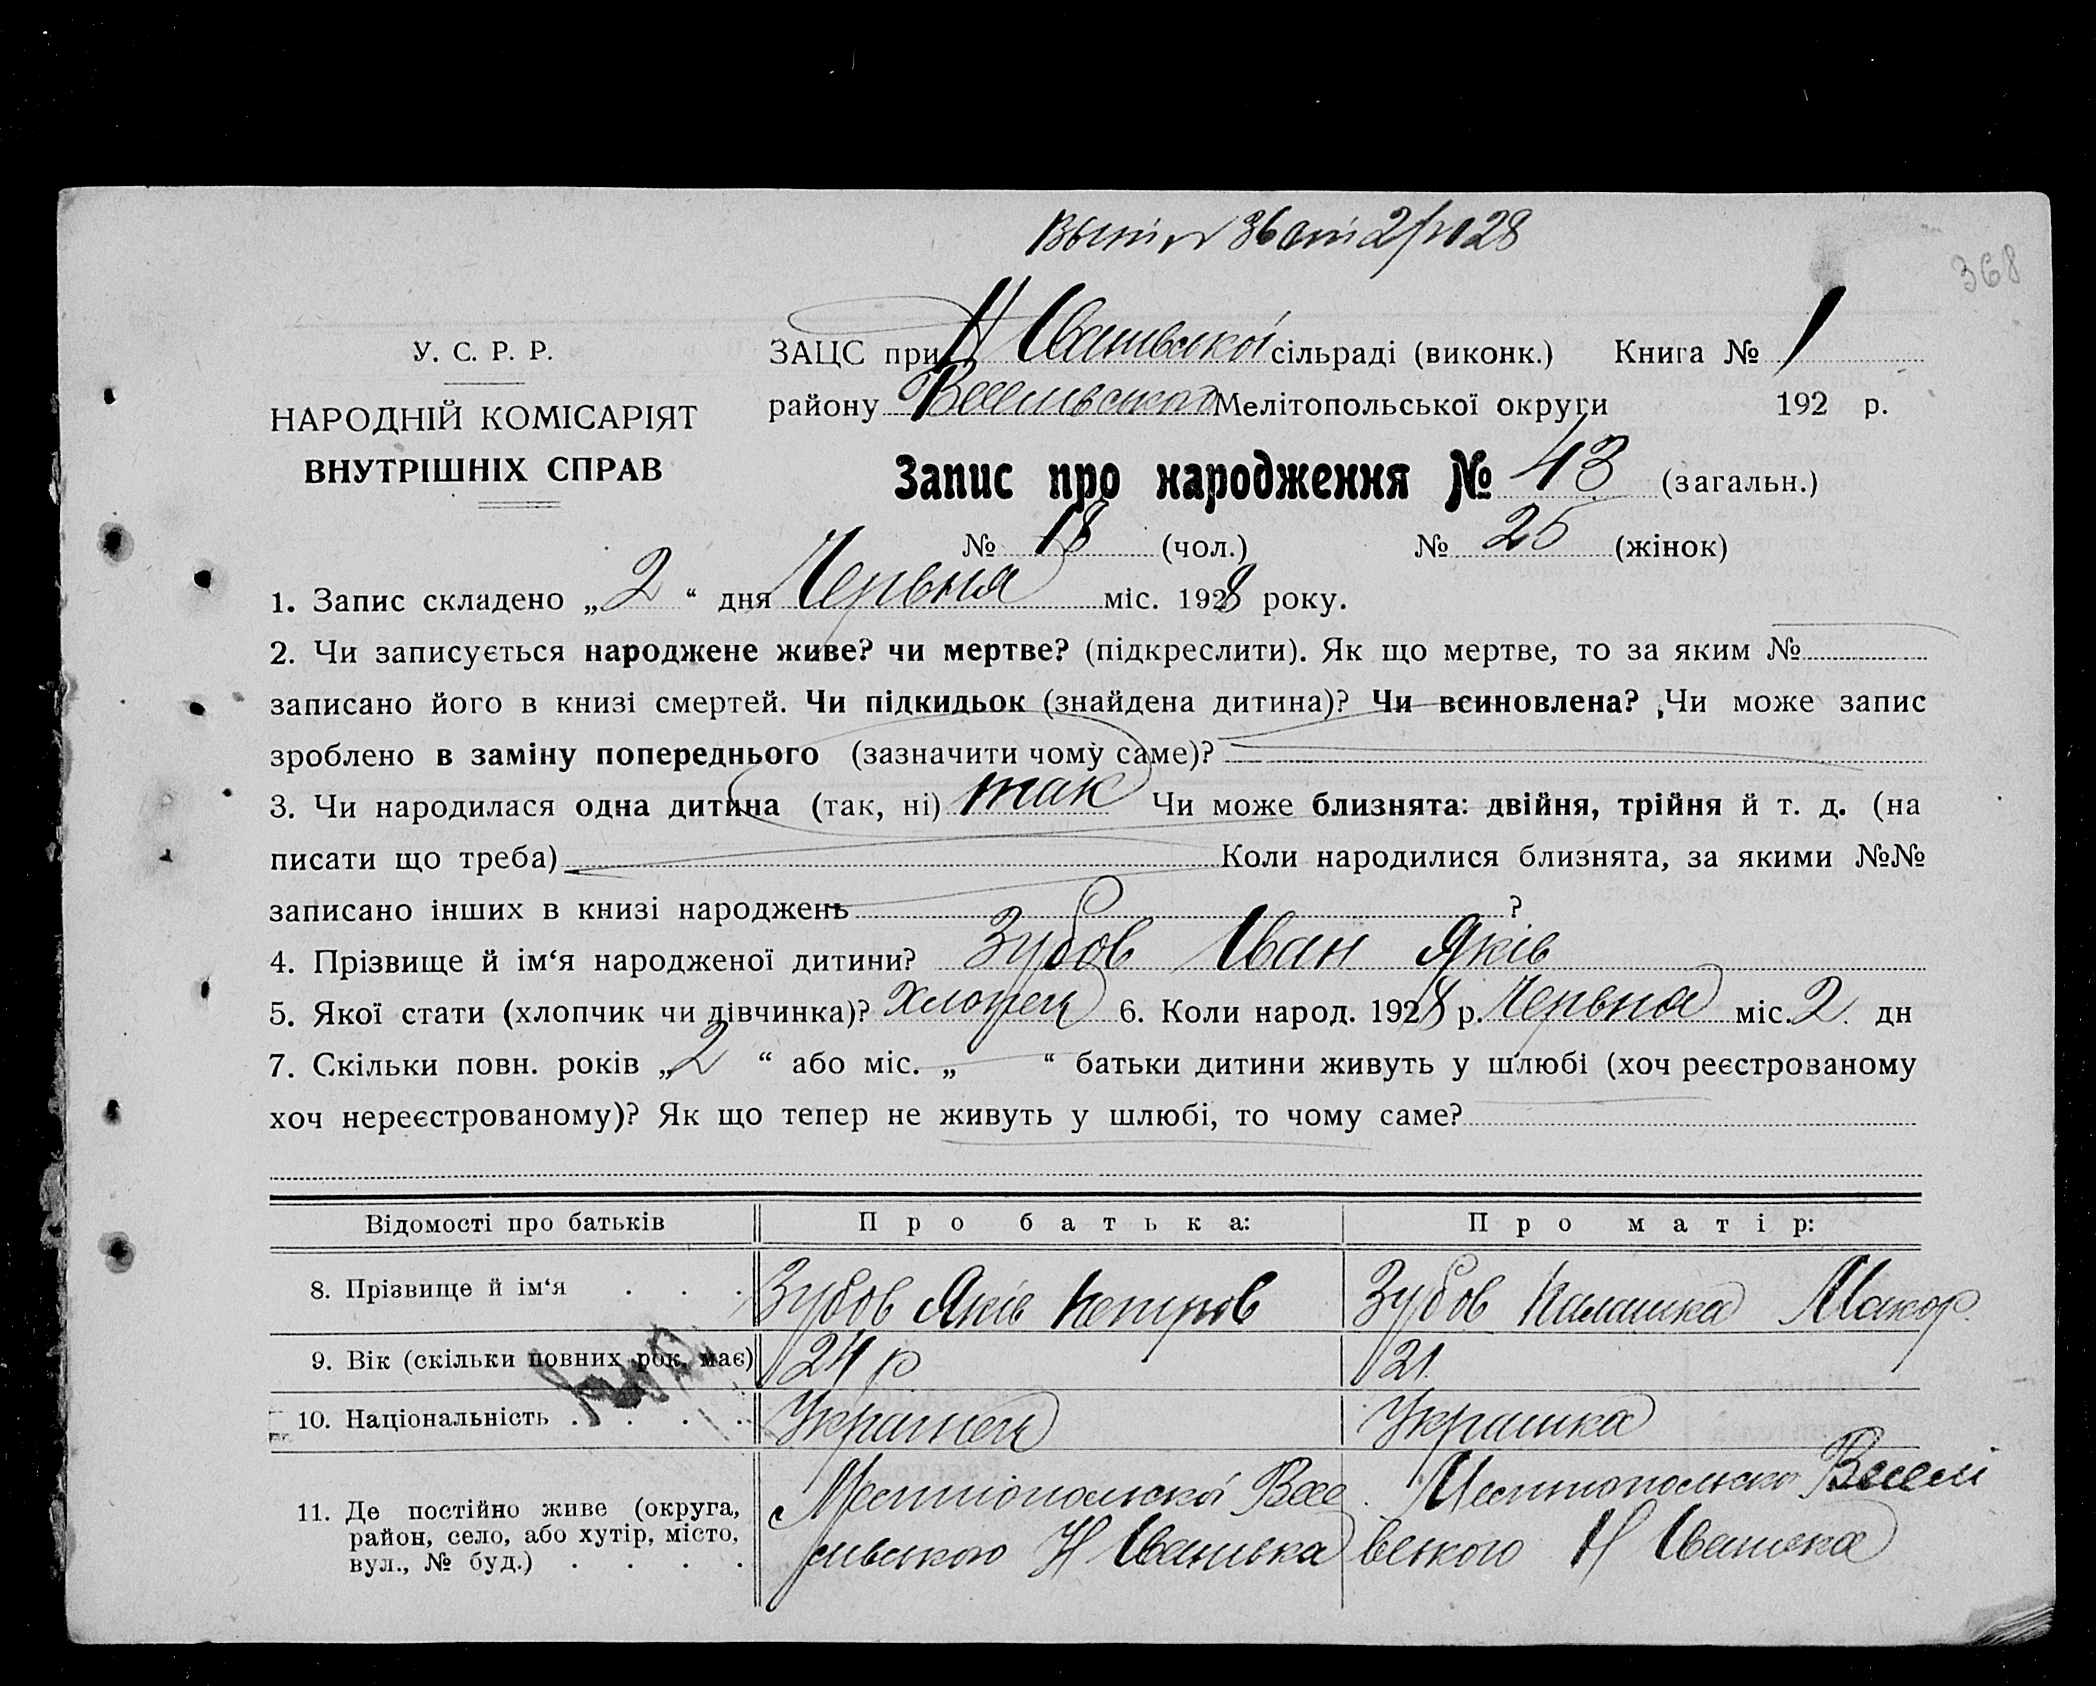 368
У. С. Р. Р.
НАРОДНІЙ КОМІСАРІЯТ
ВНУТРІШНІХ СПРАВ
ЗАЦС при Н Іванівської сільраді (виконк.) Книга № 1
району Мелітопольської округи 192 р.
Запис про народження № 43 (загальн.)
№ 18 (чол.) № 25 (жінок)
1. Запис складено „2“ дня Червня міс. 1928 року.
2. Чи записується народжене живе? чи мертве? (підкреслити). Як що мертве, то за яким №
записано його в книзі смертей. Чи підкидьок (знайдена дитина)? Чи всиновлена? Чи може запис
зроблено в заміну попереднього (зазначити чому саме)?
3. Чи народилася одна дитина (так, ні) так Чи може близнята: двійня, трійня й т. д. (на
писати що треба) Коли народилися близнята, за якими №№
записано інших в книзі народжень ?
4. Прізвище й ім‘я народженої дитини? Зубов Іван Яків
5. Якої стати (хлопчик чи дівчинка)? хлопец 6. Коли народ. 1928 р. Червня міс. 2 дн
7. Скільки повн. років „2“ або міс. „ “ батьки дитини живуть у шлюбі (хоч реєстрованому
хоч нереєстрованому)? Як що тепер не живуть у шлюбі, то чому саме?
Відомості про батьків Про батька: Про матір:
8. Прізвище й ім‘я . . . Зубов Яків Петров Зубов Палашка Макор.
9. Вік (скільки повних рок. має) 24 р 21
10. Національність . . . . Українец Українка
11. Де постійно живе (округа,
район, село, або хутір, місто,
вул., № буд.) . . . .
Мелітопольскої Весе
лівського Н Іванівка
Мелітопольско Веселі
вского Н Іванівка